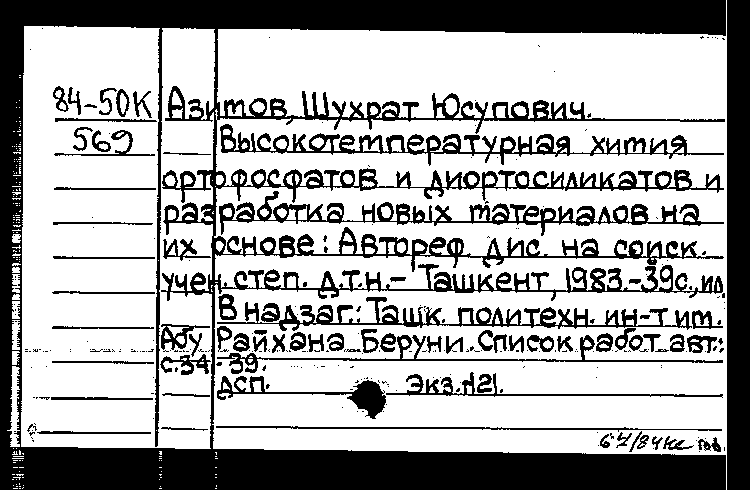 84-50К Азимов, Шухрат Юсупович.
569 Высокотемпературная химия
ортофосфатов и диортосиликатов и
разработка новых материалов на
их основе: Автореф. дис. на соиск.
учен. степ. д.т.н.- Ташкент, 1983.-39с., ил
В надзаг.: Ташк. политехн. ин-т им.
Абу Райхана Беруни. Список работ авт.:
с.34-39.
дсп. Экз.№21.